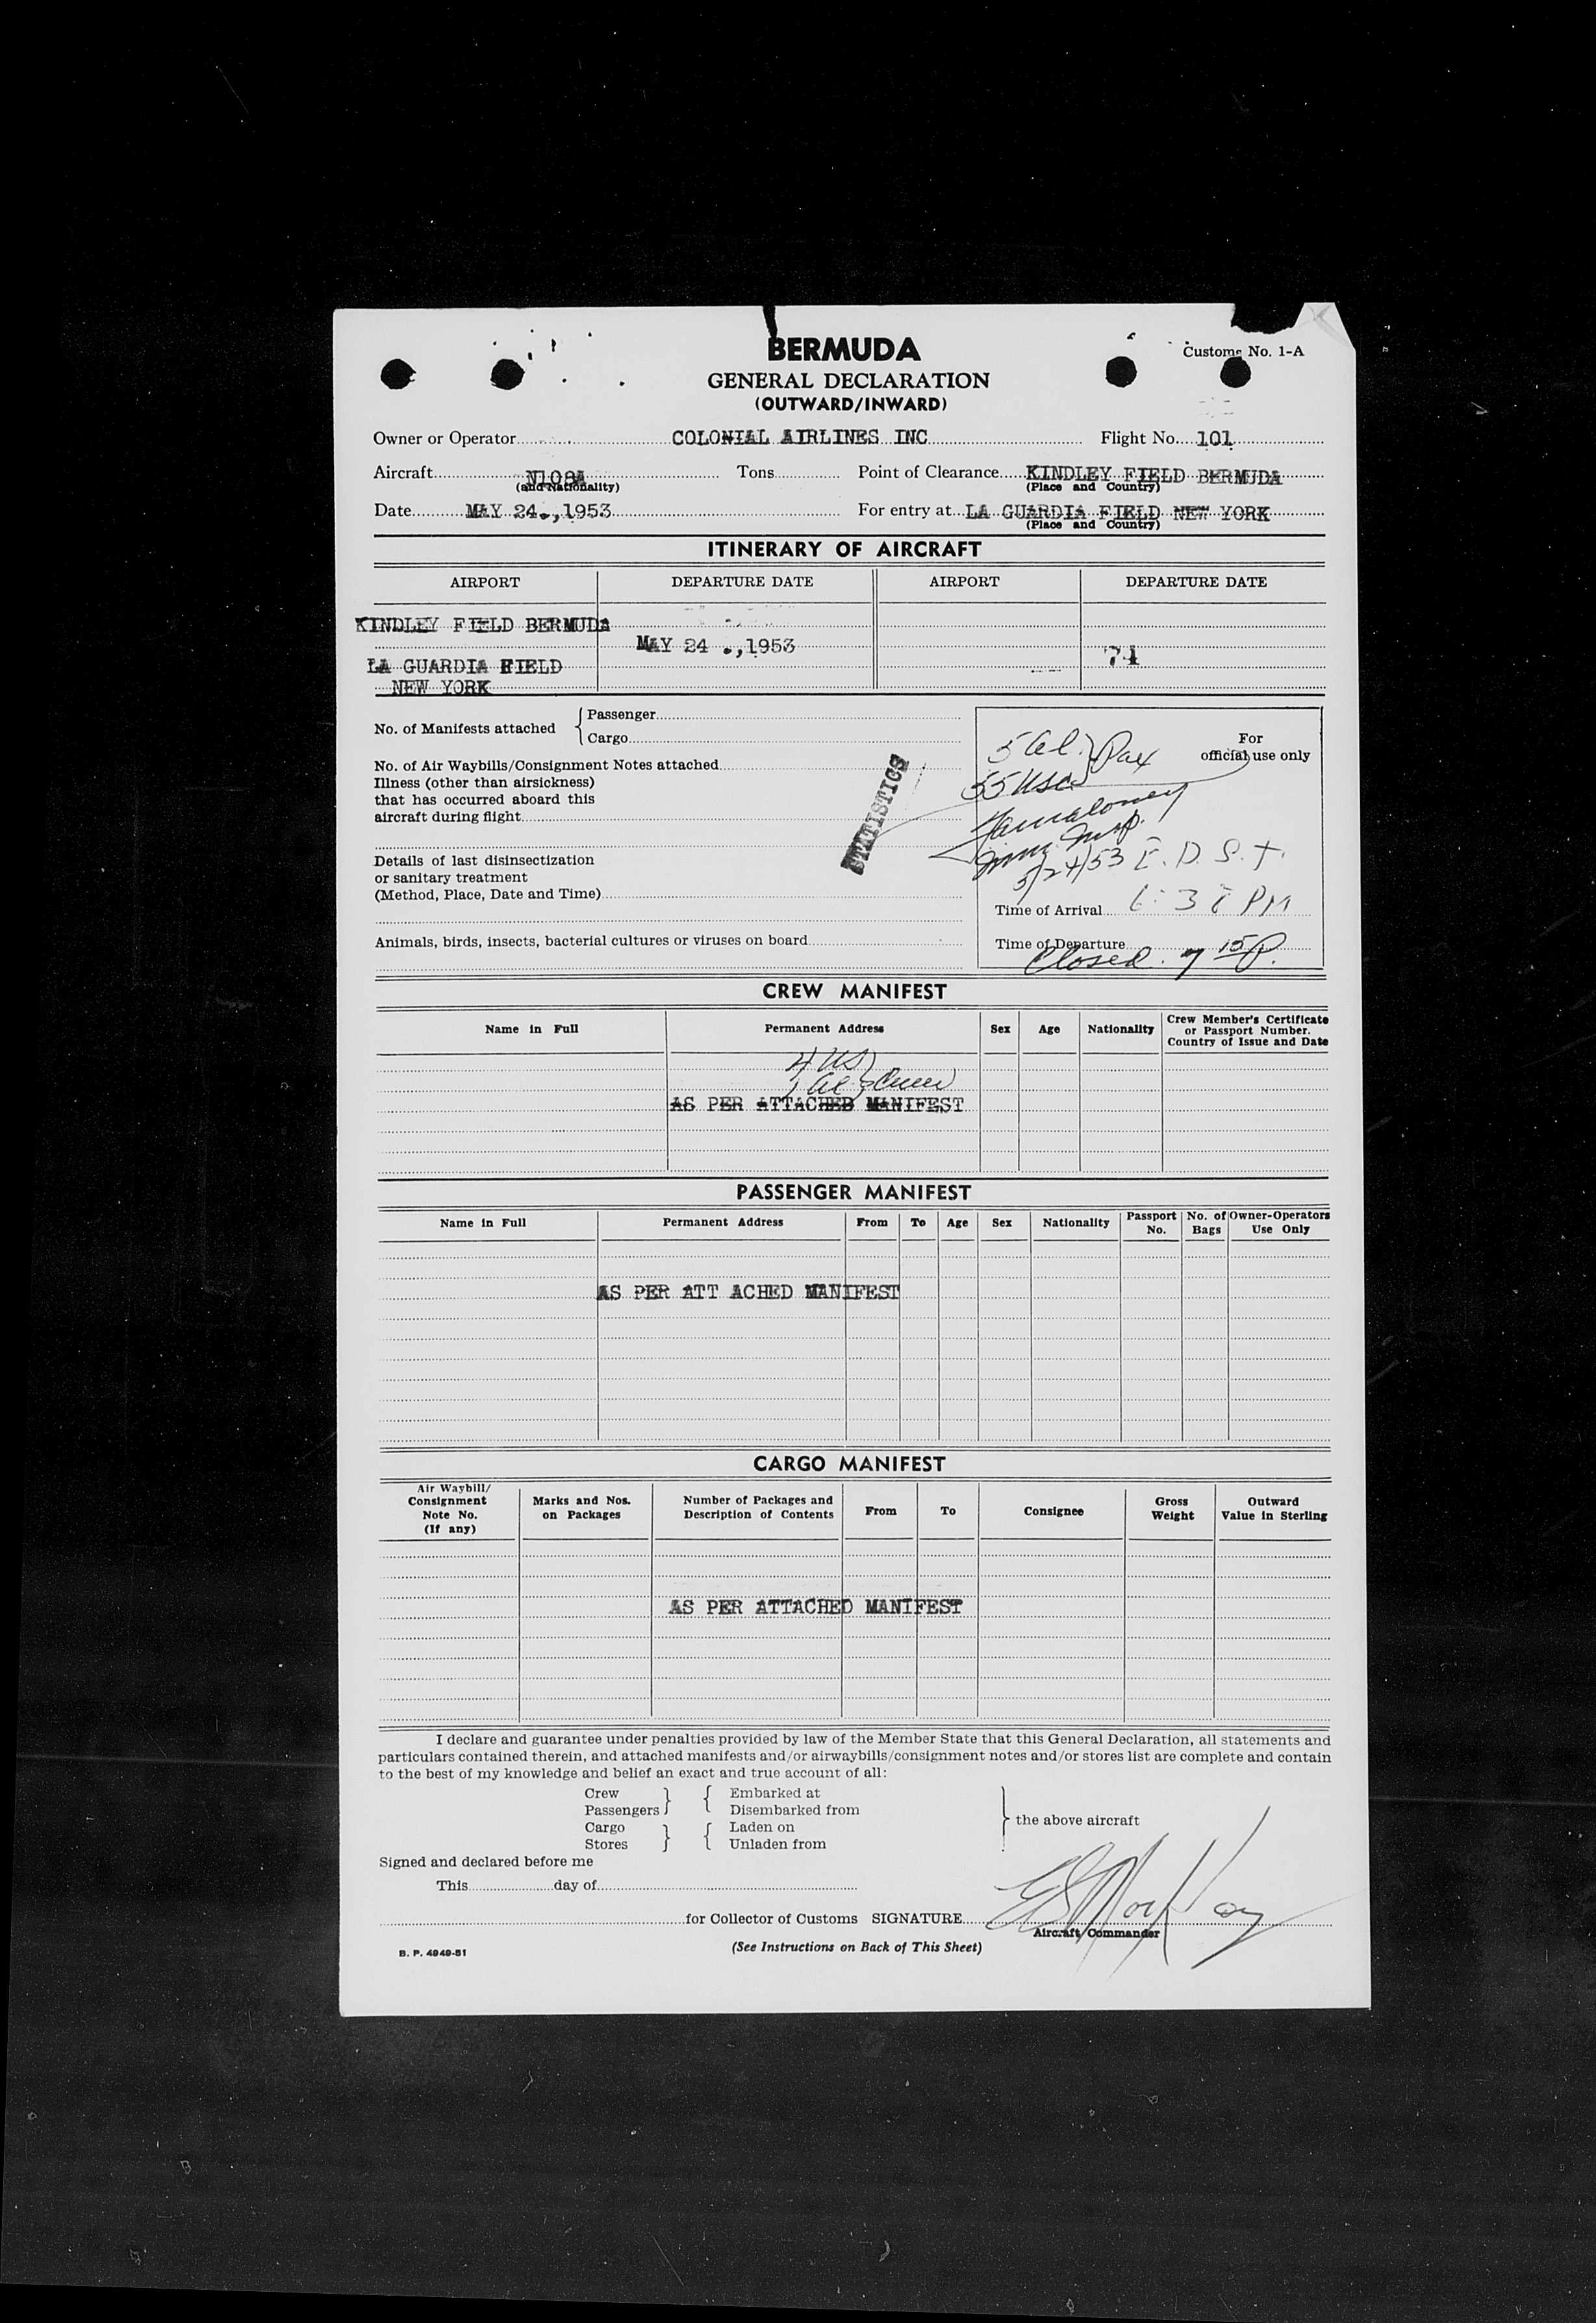 BERMUDA
Customs No. 1-A
GENERAL DECLARATION
(OUTWARD/INWARD)
Owner or Operator COLONIAL AIRLINES INC Flight No. 101
Aircraft N108A Tons Point of Clearance KINDLEY FIELD BERMUDA
(and Nationality) (Place and Country)
Date MAY 24.,1953 For entry at LA GUARDIA FIELD NEW YORK
(Place and Country)
ITINERARY OF AIRCRAFT
AIRPORT DEPARTURE DATE AIRPORT DEPARTURE DATE
KINDLEY FIELD BERMUDA
MAY 24 .,1953
71
LA GUARDIA FIELD
NEW YORK
No. of Manifests attached
Passenger
Cargo
No. of Air Waybills/Consignment Notes attached
Illness (other than airsickness)
that has occurred aboard this
aircraft during flight
Details of last disinsectization
or sanitary treatment
(Method, Place, Date and Time)
Animals, birds, insects, bacterial cultures or viruses on board
STATISTICS
For
official use only
5 al. Pax
55 USC
Imm. Insp.
5/24/53 E.D.S.T.
Time of Arrival 6:38 PM
Time of Departure
Closed. 7 15 P.
CREW MANIFEST
Name in Full Permanent Address Sex Age Nationality Crew Member's Certificate
or Passport Number.
Country of Issue and Date
4 US
1 al Crew
AS PER ATTACHED MANIFEST
PASSENGER MANIFEST
Name in Full Permanent Address From To Age Sex Nationality Passport No. No. of Bags Owner-Operators Use Only
AS PER ATT ACHED MANIFEST
CARGO MANIFEST
Air Waybill/
Consignment
Note No.
(If any)
Marks and Nos.
on Packages
Number of Packages and
Description of Contents
From To Consignee
Gross
Weight
Outward
Value in Sterling
AS PER ATTACHED MANIFEST
I declare and guarantee under penalties provided by law of the Member State that this General Declaration, all statements and
particulars contained therein, and attached manifests and/or airwaybills/consignment notes and/or stores list are complete and contain
to the best of my knowledge and belief an exact and true account of all:
Crew Embarked at
Passengers Disembarked from
Cargo Laden on
Stores Unladen from
the above aircraft
Signed and declared before me
This day of
for Collector of Customs SIGNATURE
Aircraft Commander
B. P. 4949-51
(See Instructions on Back of This Sheet)